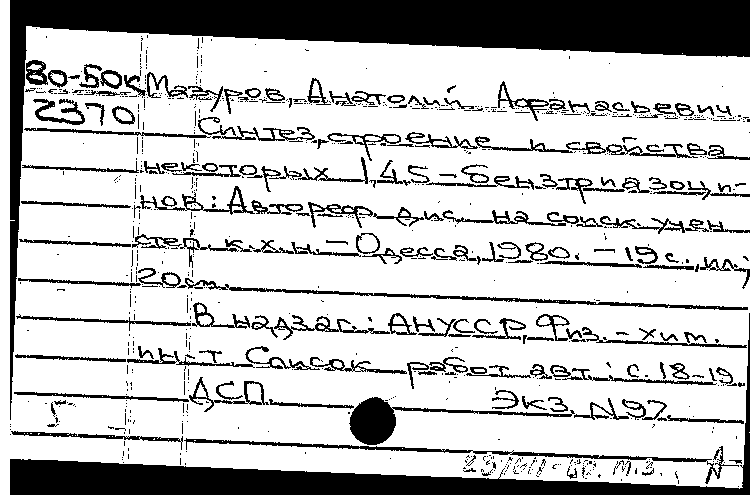 80-БОК Мазуров, Анатолий Афанасьевич.
2370 Синтез, строение и свойства
некоторых 1,4,5-бензтриазоци-
нов: Автореф. дис. на соиск. учен
степ. к.х.н. - Одесса, 1980. - 19 с., ил.;
20 см.
В надзаг.: АН УССР, Физ.-хим.
ин-т. Список работ авт.: с. 18-19
ДСП. Экз. N97.